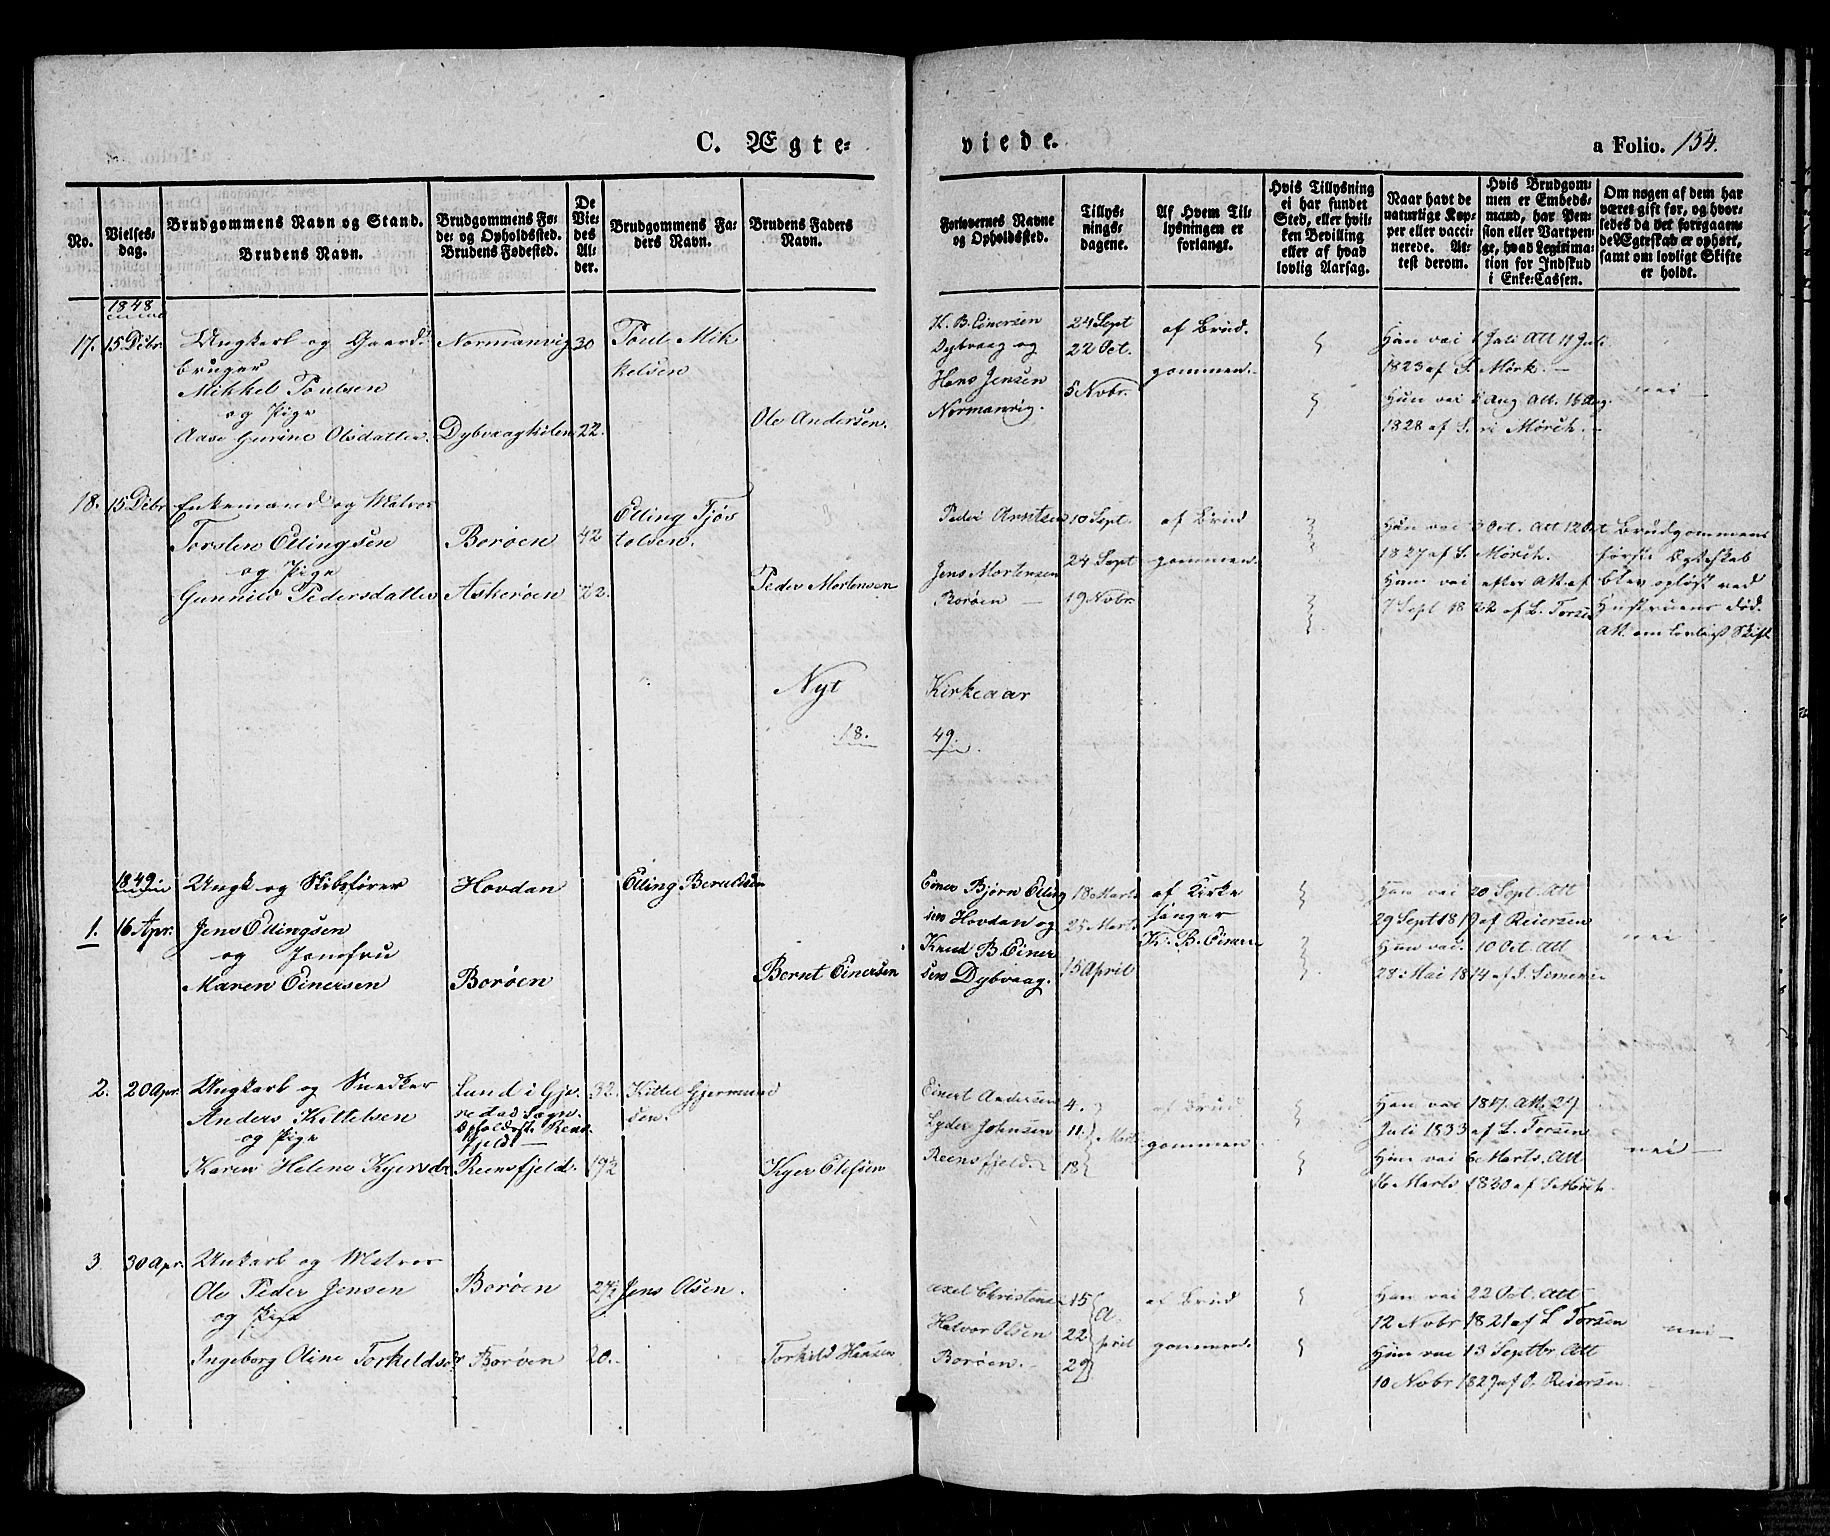 C. Ægte-
viede.
a Folio. 154.
No.
Vielses-
dag.
Brudgommens Navn og Stand.
Brudens Navn.
Brudgommens Fø-
de- og Opholdssted.
Brudens Fødested.
De
Vie-
des
Al-
der.
Brudgommens Fa-
ders Navn.
Brudens Faders
Navn.
Forlovernes Navne
og Opholdssted.
Tillys-
nings-
dagene.
Af Hvem Til-
lysningen er
forlangt.
Hvis Tillysning
ei har fundet
Sted, eller hvil-
ken Bevilling
eller af hvad
lovlig Aarsag.
Naar havt de
naturlige Kop-
per eller vacci-
nerede. At-
test derom.
Hvis Brudgom-
men er Embeds-
mand, har Pen-
sion eller Vartpen-
ge, hvad Legitima-
tion for Indskud
i Enke-Cassen.
Om nogen af dem har
været gift før, og hvor-
ledes da det foregaaen-
de Ægteskab er ophørt,
samt om lovligt Skifte
er holdt.
1848
17. 15 Debr. Ungkarl og Gaard-
bruger
Mikkel Poulsen
og Pige
Aase Gurine Olsdatter
Normanvig 30
Dybvaagkilen 22.
Poul Mik
kelsen
Ole Andersen.
K. B. Einersen
Dybvaag og
Hans Jensen
Normanvig.
24 Sept
22 Oct.
5 Nobr.
af Brud.
gommen.
Han vac 1 Juli Att 11 Juli
1823 af S. Mörk.
Hun vac Aug Att. 16 Aug.
1828 af S. Mörch.
nei
18. 15 Debr Enkemand og Matros
Torsten Ellingsen
og Pige
Gunnild Pedersdatter
Borøen 42
Askerøen 22.
Elling Tjøs
tolsen.
Peder Mortensen
Peder Arntsen
Jens Mortensen
Borøen
10 Sept.
24 Sept
19 Nobr.
af Brud
gommen.
Han vac 3 Oct. Att 12 Oct
1827 af S. Mörch.
Hun vac efter Att. af
7 Sept 1822 af L. Torsen
Brudgommens
første Egteskab
blev opløst ved
Hustruens død.
Att. om lovligt Skift
Nyt
Kirkeaar
18.
49.
1849
1. 16 Apr. Ungk og Skibsfører
Jens Ellingsen
og Jomfru
Maren Einersen
Hovdan
Borøen
Elling Beruldsen
Bernt Einersen
Einer Bjørn Elling
sen Hovdan og
Knud B Einer
sen Dybvaag.
18 Marts
25 Marts
15 April
af Kirke
sanger
K. B. Einer
Han vac 20 Sept. Att
29 Sept 1819 af Reiersen
Hun vac 10 Oct. Att
28 Mai 1814 af
nei
2. 20 Apr. Ungkarl og Snedker
Anders Kittelsen
og Pige
Karen Helene Kyersdr
Lund i Gje
restad Sogn.
Opholdsst. Reens
fjeld
Reensfjeld.
32.
19½
Kittel Gjermund
sen.
Kyer Olefsen
Einert Andersen
Lyder Johnsen
Reensfjeld.
4.
11.
18
Marts
af Brud
gommen
Han vac 1817. Att. 29
Juli 1833 af L. Torsen
Hun vac 6 Marts. Att
16 Marts 1830 af S Mörch.
nei
3. 30 Apr. Unkarl og Matros
Ole Peder Jensen
og Pige
Ingeborg Oline Torkildsdr
Borøen
Borøen
24½
20.
Jens Olsen.
Torkild Hansen
Axel Christensen
Halvor Olsen
Borøen.
15
22
29
A
pril
af Brud
gommen.
Han vac 22 Oct. Att
12 Nobr 1821 af L Torsen
Hun vac 13 Septbr. Att
10 Nobr 1829 af O. Reiersen
nei